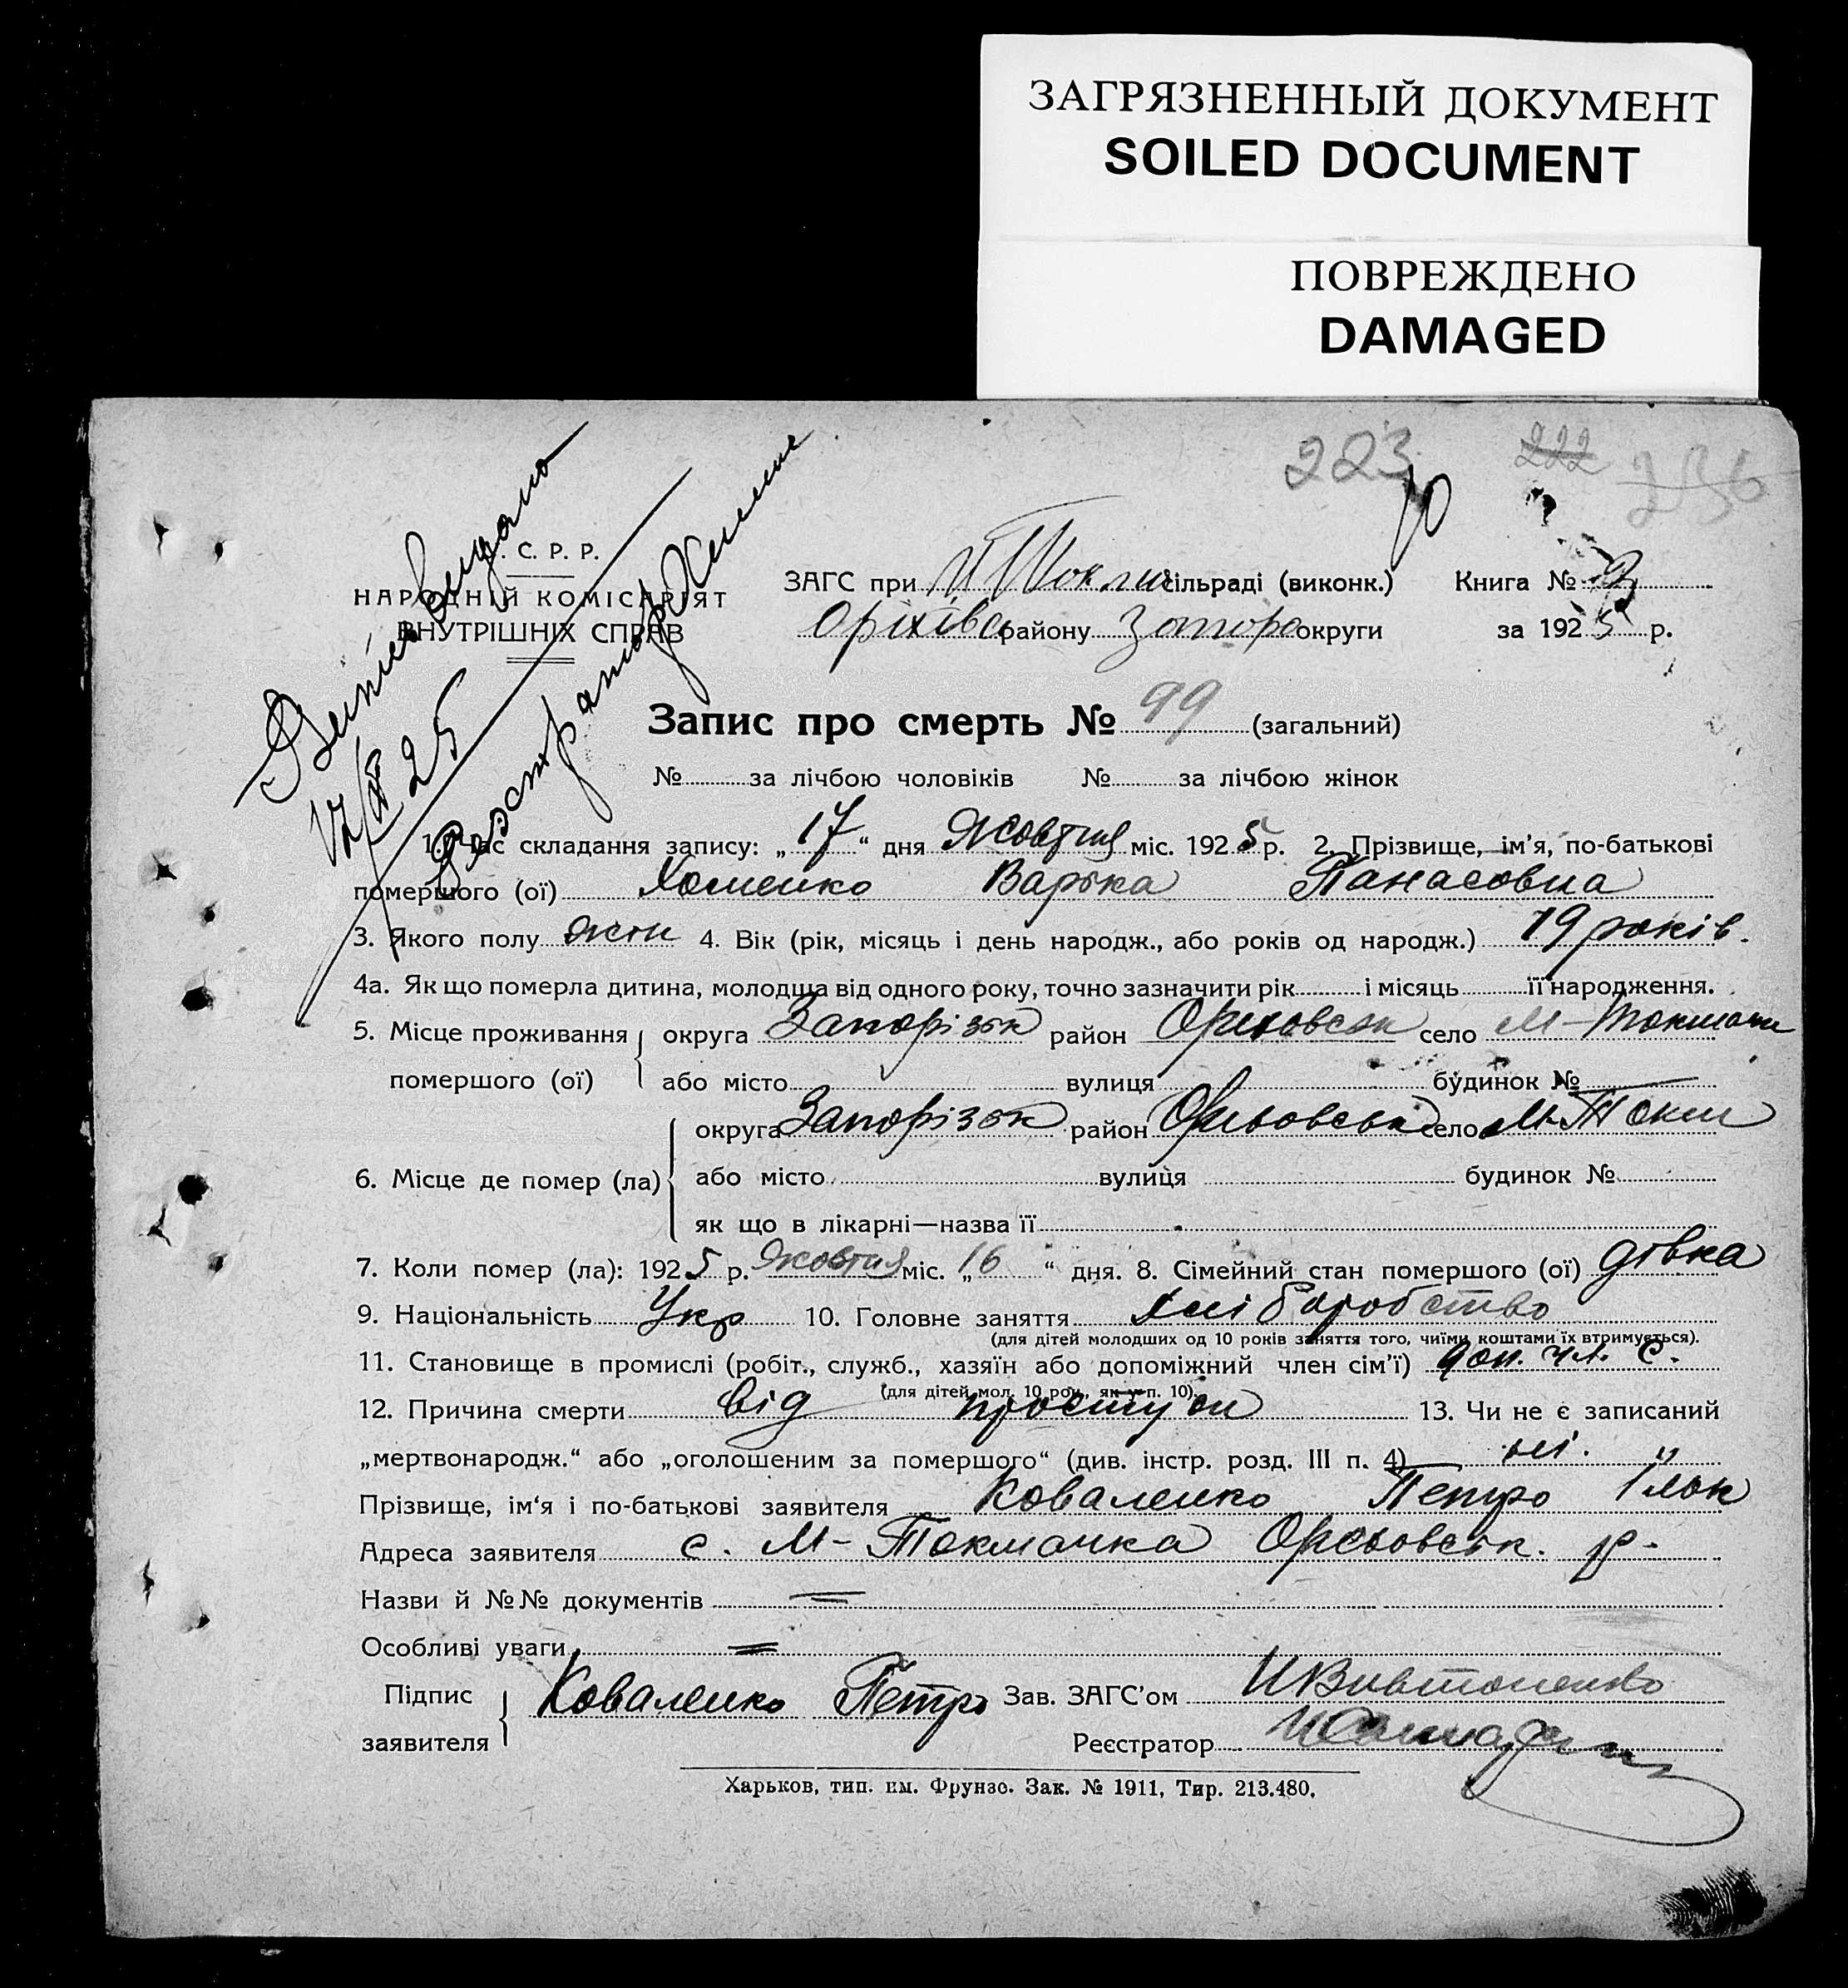 ЗАГРЯЗНЕННЫЙ ДОКУМЕНТ
SOILED DOCUMENT
ПОВРЕЖДЕНО
DAMAGED
223 222 236
10
. С. Р. Р.
НАРОДНІЙ КОМІСАРІЯТ
ВНУТРІШНІХ СПРАВ
видано
25
ЗАГС при М Токма сільраді (виконк.) Книга №
Оріхівс району Запорр округи за 1925 р.
Запис про смерть № 99 (загальний)
№ за лічбою чоловіків № за лічбою жінок
1. Час складання запису: „17“ дня Жовтня міс. 1925 р. 2. Прізвище, ім’я, по-батькові
помершого (ої) Хоменко Варька Панасовна
3. Якого полу жін 4. Вік (рік, місяць і день народж., або років од народж.) 19 років.
4а. Як що померла дитина, молодша від одного року, точно зазначити рік і місяць її народження.
5. Місце проживання помершого (ої) округа Запорізьк район Ореховськ село М-Токмачк
або місто вулиця будинок №
6. Місце де помер (ла) округа Запорізьк район Ореховськ село М-Токм
або місто вулиця будинок №
як що в лікарні—назва її
7. Коли помер (ла): 1925 р. Жовтня міс. „16“ дня. 8. Сімейний стан помершого (ої) дівка
9. Національність Укр 10. Головне заняття хліборобство
(для дітей молодших од 10 років заняття того, чиїми коштами їх втримується).
11. Становище в промислі (робіт., служб., хазяїн або допоміжний член сім’ї) доп. чл. с.
(для дітей мол. 10 рок., як у п. 10).
12. Причина смерти від простуди 13. Чи не є записаний
„мертвонародж.“ або „оголошеним за помершого“ (див. інстр. розд. III п. 4) ні.
Прізвище, ім‘я і по-батькові заявителя Коваленко Петро
Адреса заявителя с. М-Токмачка Ореховськ. р-
Назви й №№ документів =
Особливі уваги =
Підпис заявителя Коваленко Петро Зав. ЗАГС’ом
Реєстратор
Харьков, тип. им. Фрунзе. Зак. № 1911, Тир. 213.480.